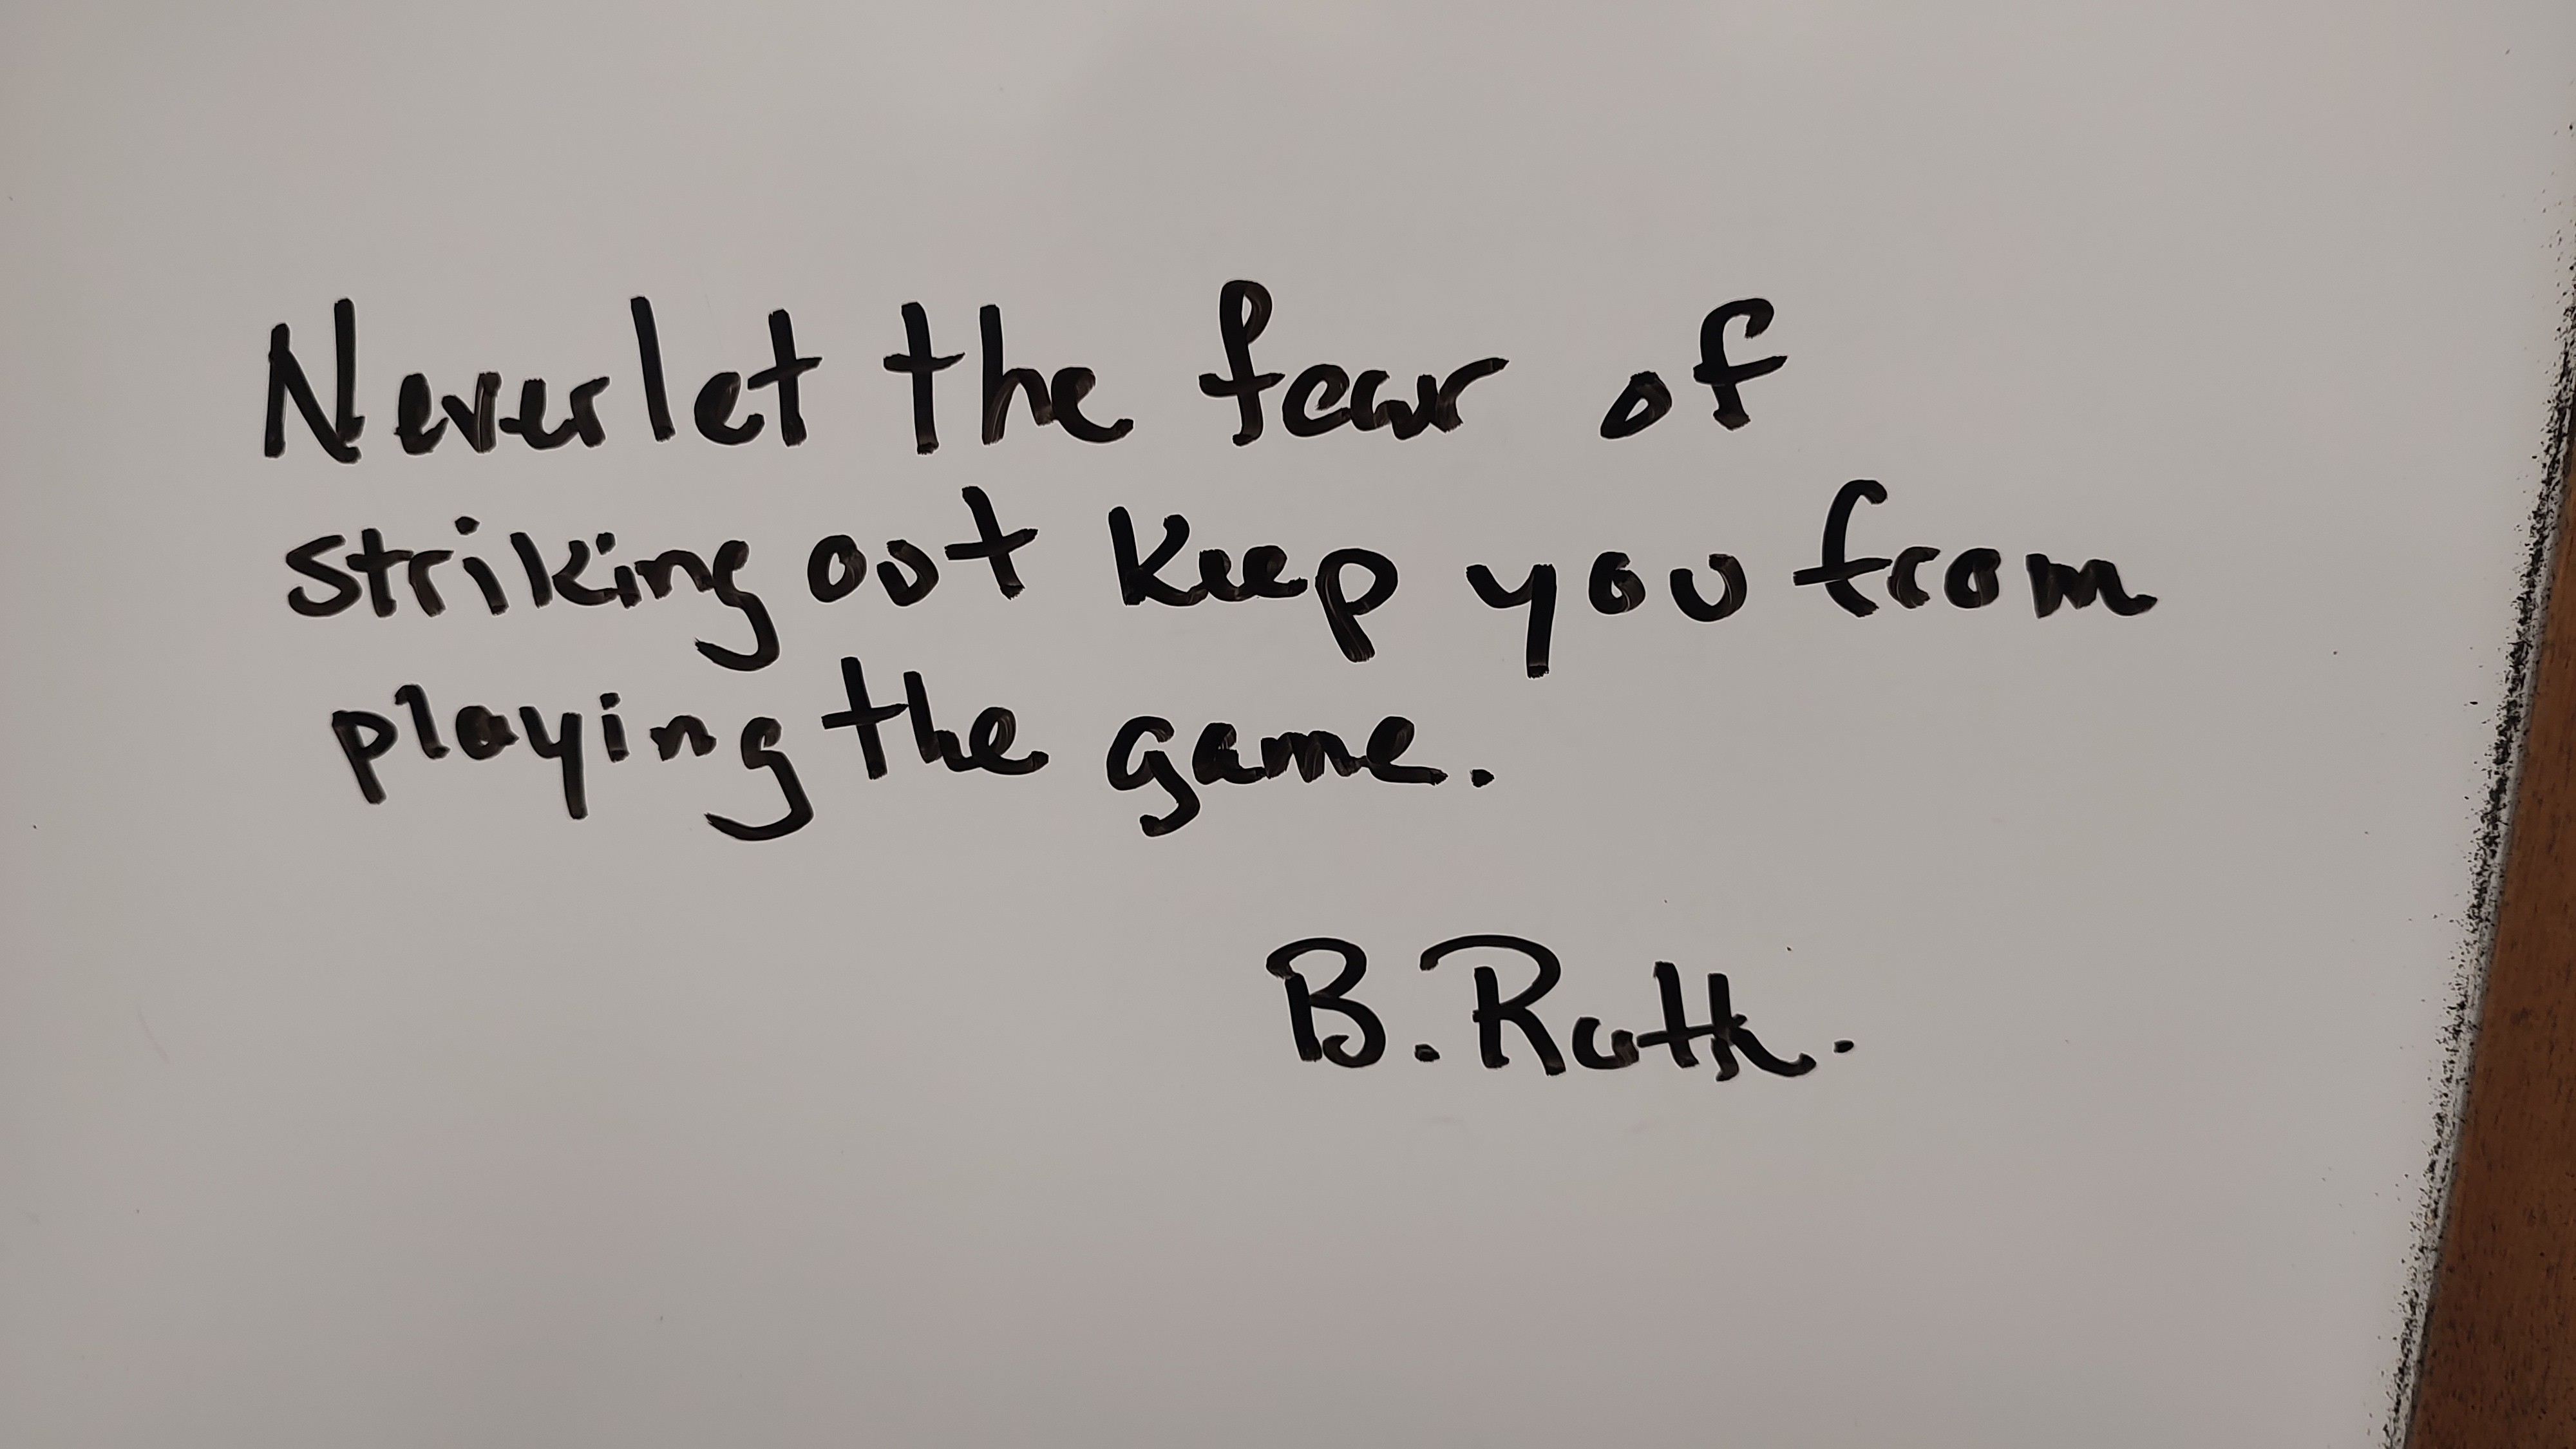 Never let the fear of
striking out keep you from
playing the game.
B. Ruth.